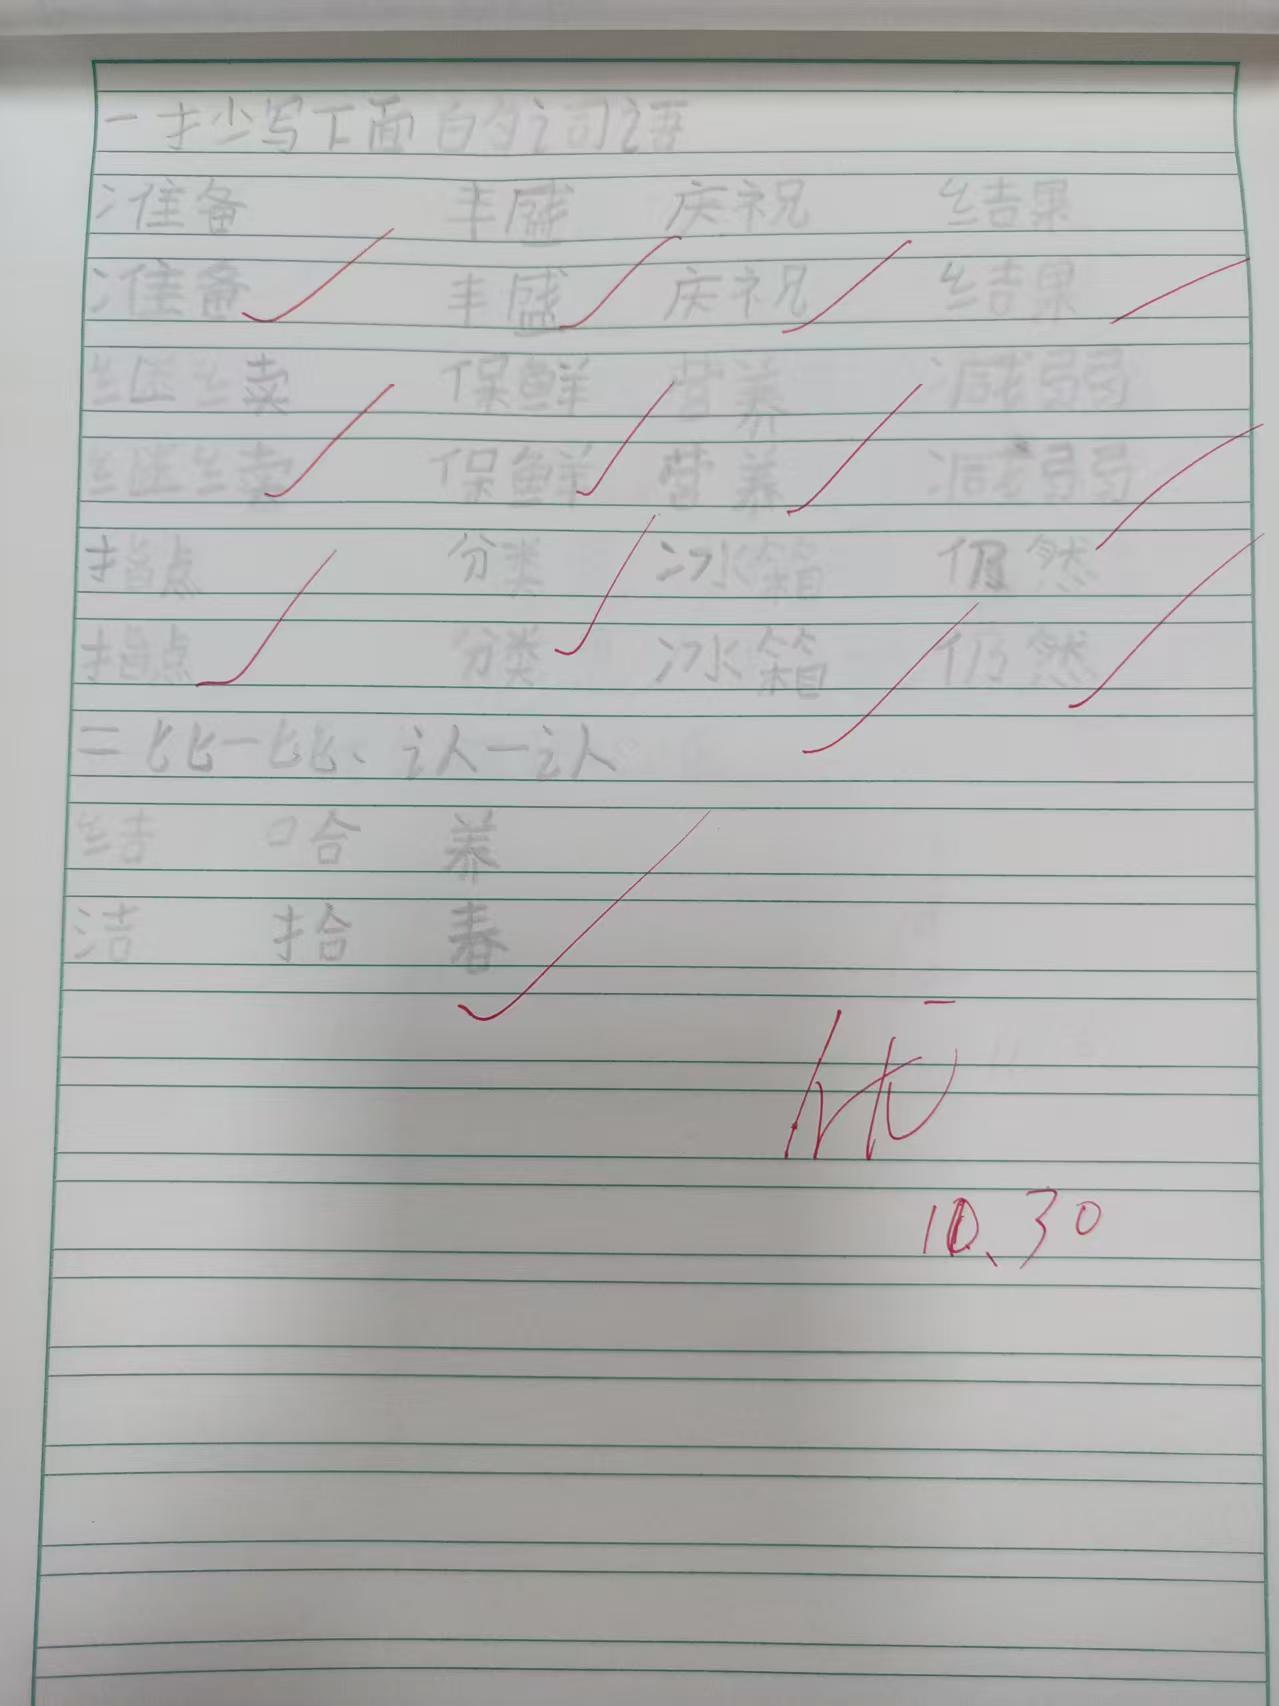 一抄写下面的词语
准备 丰盛 庆祝 结果
准备 丰盛 庆祝 结果
继续 保鲜 营养 减弱
继续 保鲜 营养 减弱
指点 分类 冰箱 仍然
指点 分类 冰箱 仍然
二比一比、认一认
结 哈 养
洁 拾 春
优-
10、30